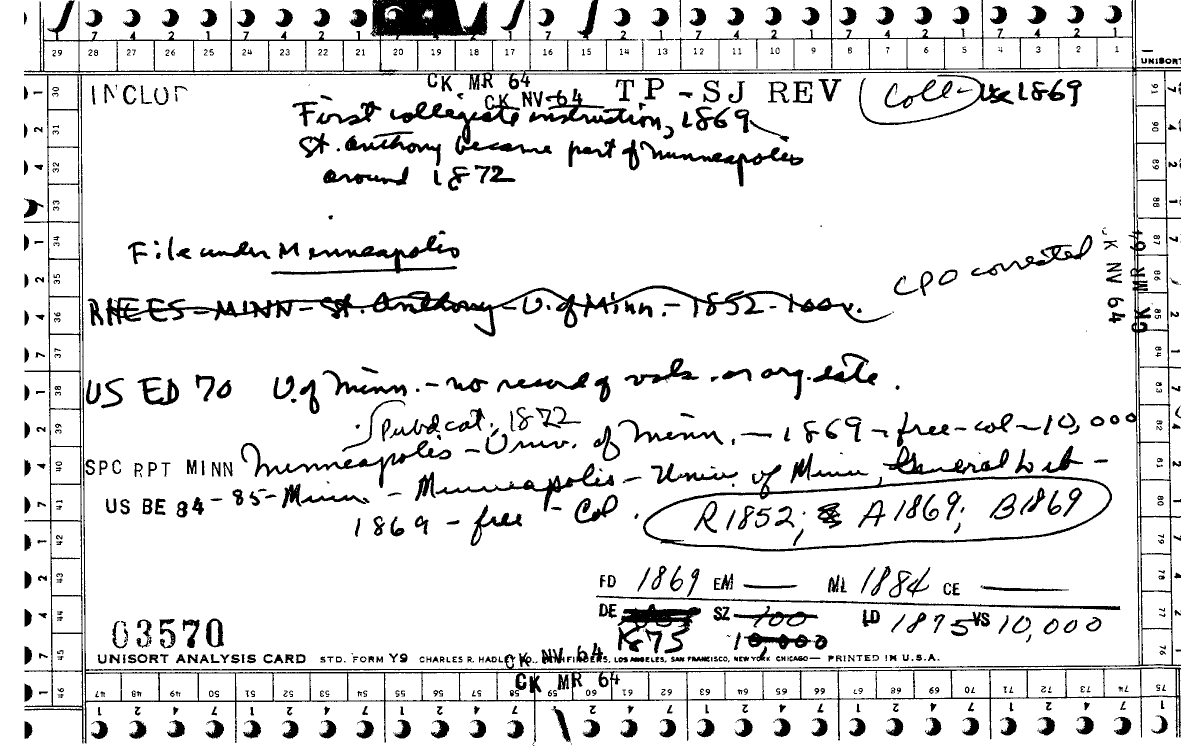 7 4 2 1 7 4 2 1 7 4 2 1 7 4 2 1 7 4 2 1 7 4 2 1 7 4 2 1
29 28 27 26 25 24 23 22 21 20 19 18 17 16 15 14 13 12 11 10 9 8 7 6 5 4 3 2 1
UNISORT
CK MR 64
INCLUD TP - SJ REV Coll - 1869
CK NV 64
First collegiate instruction, 1869
St. Anthony became part of Minneapolis
around 1872
File under Minneapolis
CPO corrected
CK NV 64
CK MR 64
RHEES - MINN - St. Anthony - U. of Minn. - 1852 - 100v.
US ED 70 U. of Minn. - no record of vols. or org. date.
Pub'd cat. 1872
SPC RPT MINN Minneapolis - Univ. of Minn. - 1869 - free - col - 10,000
US BE 84 - 85 - Minn - Minneapolis - Univ. of Minn, General Lib -
1869 - free - Col.
R1852; A1869; B1869
FD 1869 EM — ML 1884 CE —
DE 1875 SZ 100 10,000 LD 1875 VS 10,000
03570
UNISORT ANALYSIS CARD STD. FORM Y9 CHARLES R. HADLEY CO., PATHFINDERS, LOS ANGELES, SAN FRANCISCO, NEW YORK CHICAGO — PRINTED IN U.S.A.
CK NV 64
CK MR 64
30 31 32 33 34 35 36 37 38 39 40 41 42 43 44 45 46
47 48 49 50 51 52 53 54 55 56 57 58 59 60 61 62 63 64 65 66 67 68 69 70 71 72 73 74 75
76 77 78 79 80 81 82 83 84 85 86 87 88 89 90 91